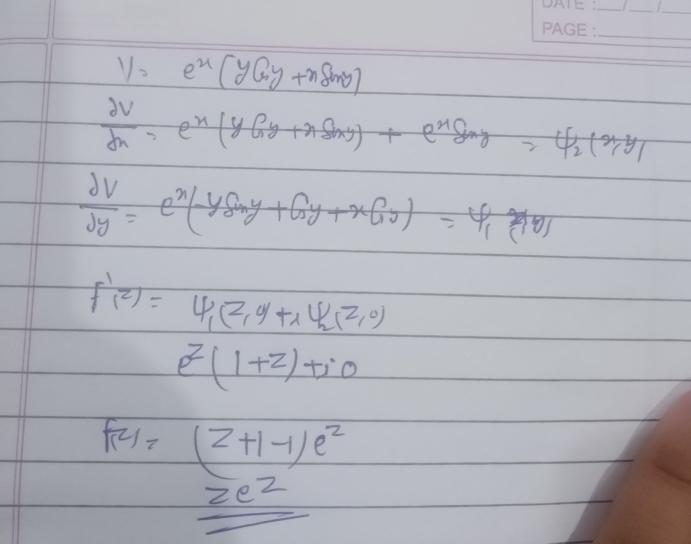 DATE: __/__/__
PAGE:
V = e^x (y Cosy + x Siny)
∂V/∂x = e^x (y Cosy + x Siny) + e^x Siny = ψ₂(x,y)
∂V/∂y = e^x (-y Siny + Cosy + x Cosy) = ψ₁(x,y)
f'(z) = ψ₁(z,0) + i ψ₂(z,0)
e^z (1+z) + i0
f(z) = (z+1-1) e^z
ze^z